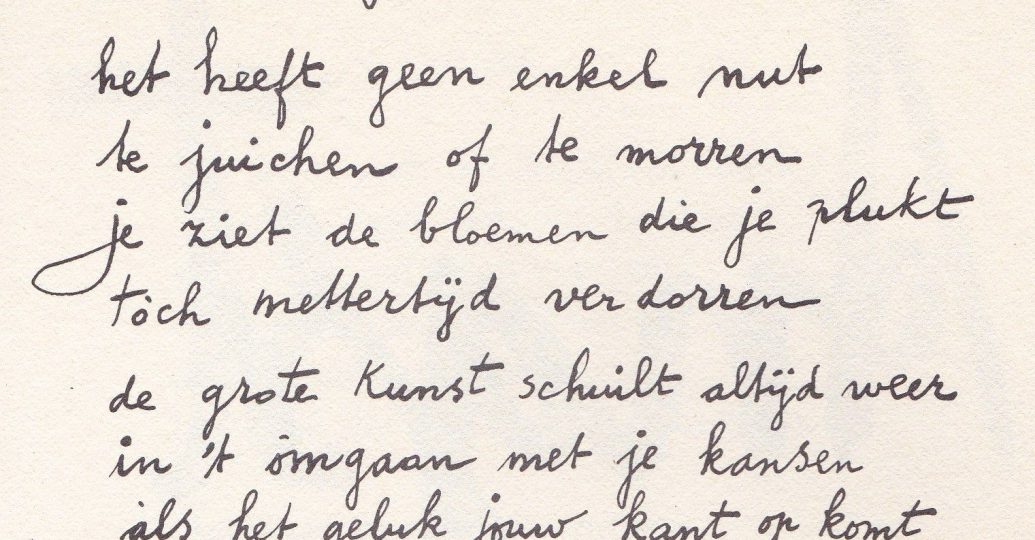 het heeft geen enkel nut
te juichen of te morren
je ziet de bloemen die je plukt
tòch mettertijd verdorren
de grote kunst schuilt altijd weer
in 't òmgaan met je kansen
als het geluk jouw kant op komt